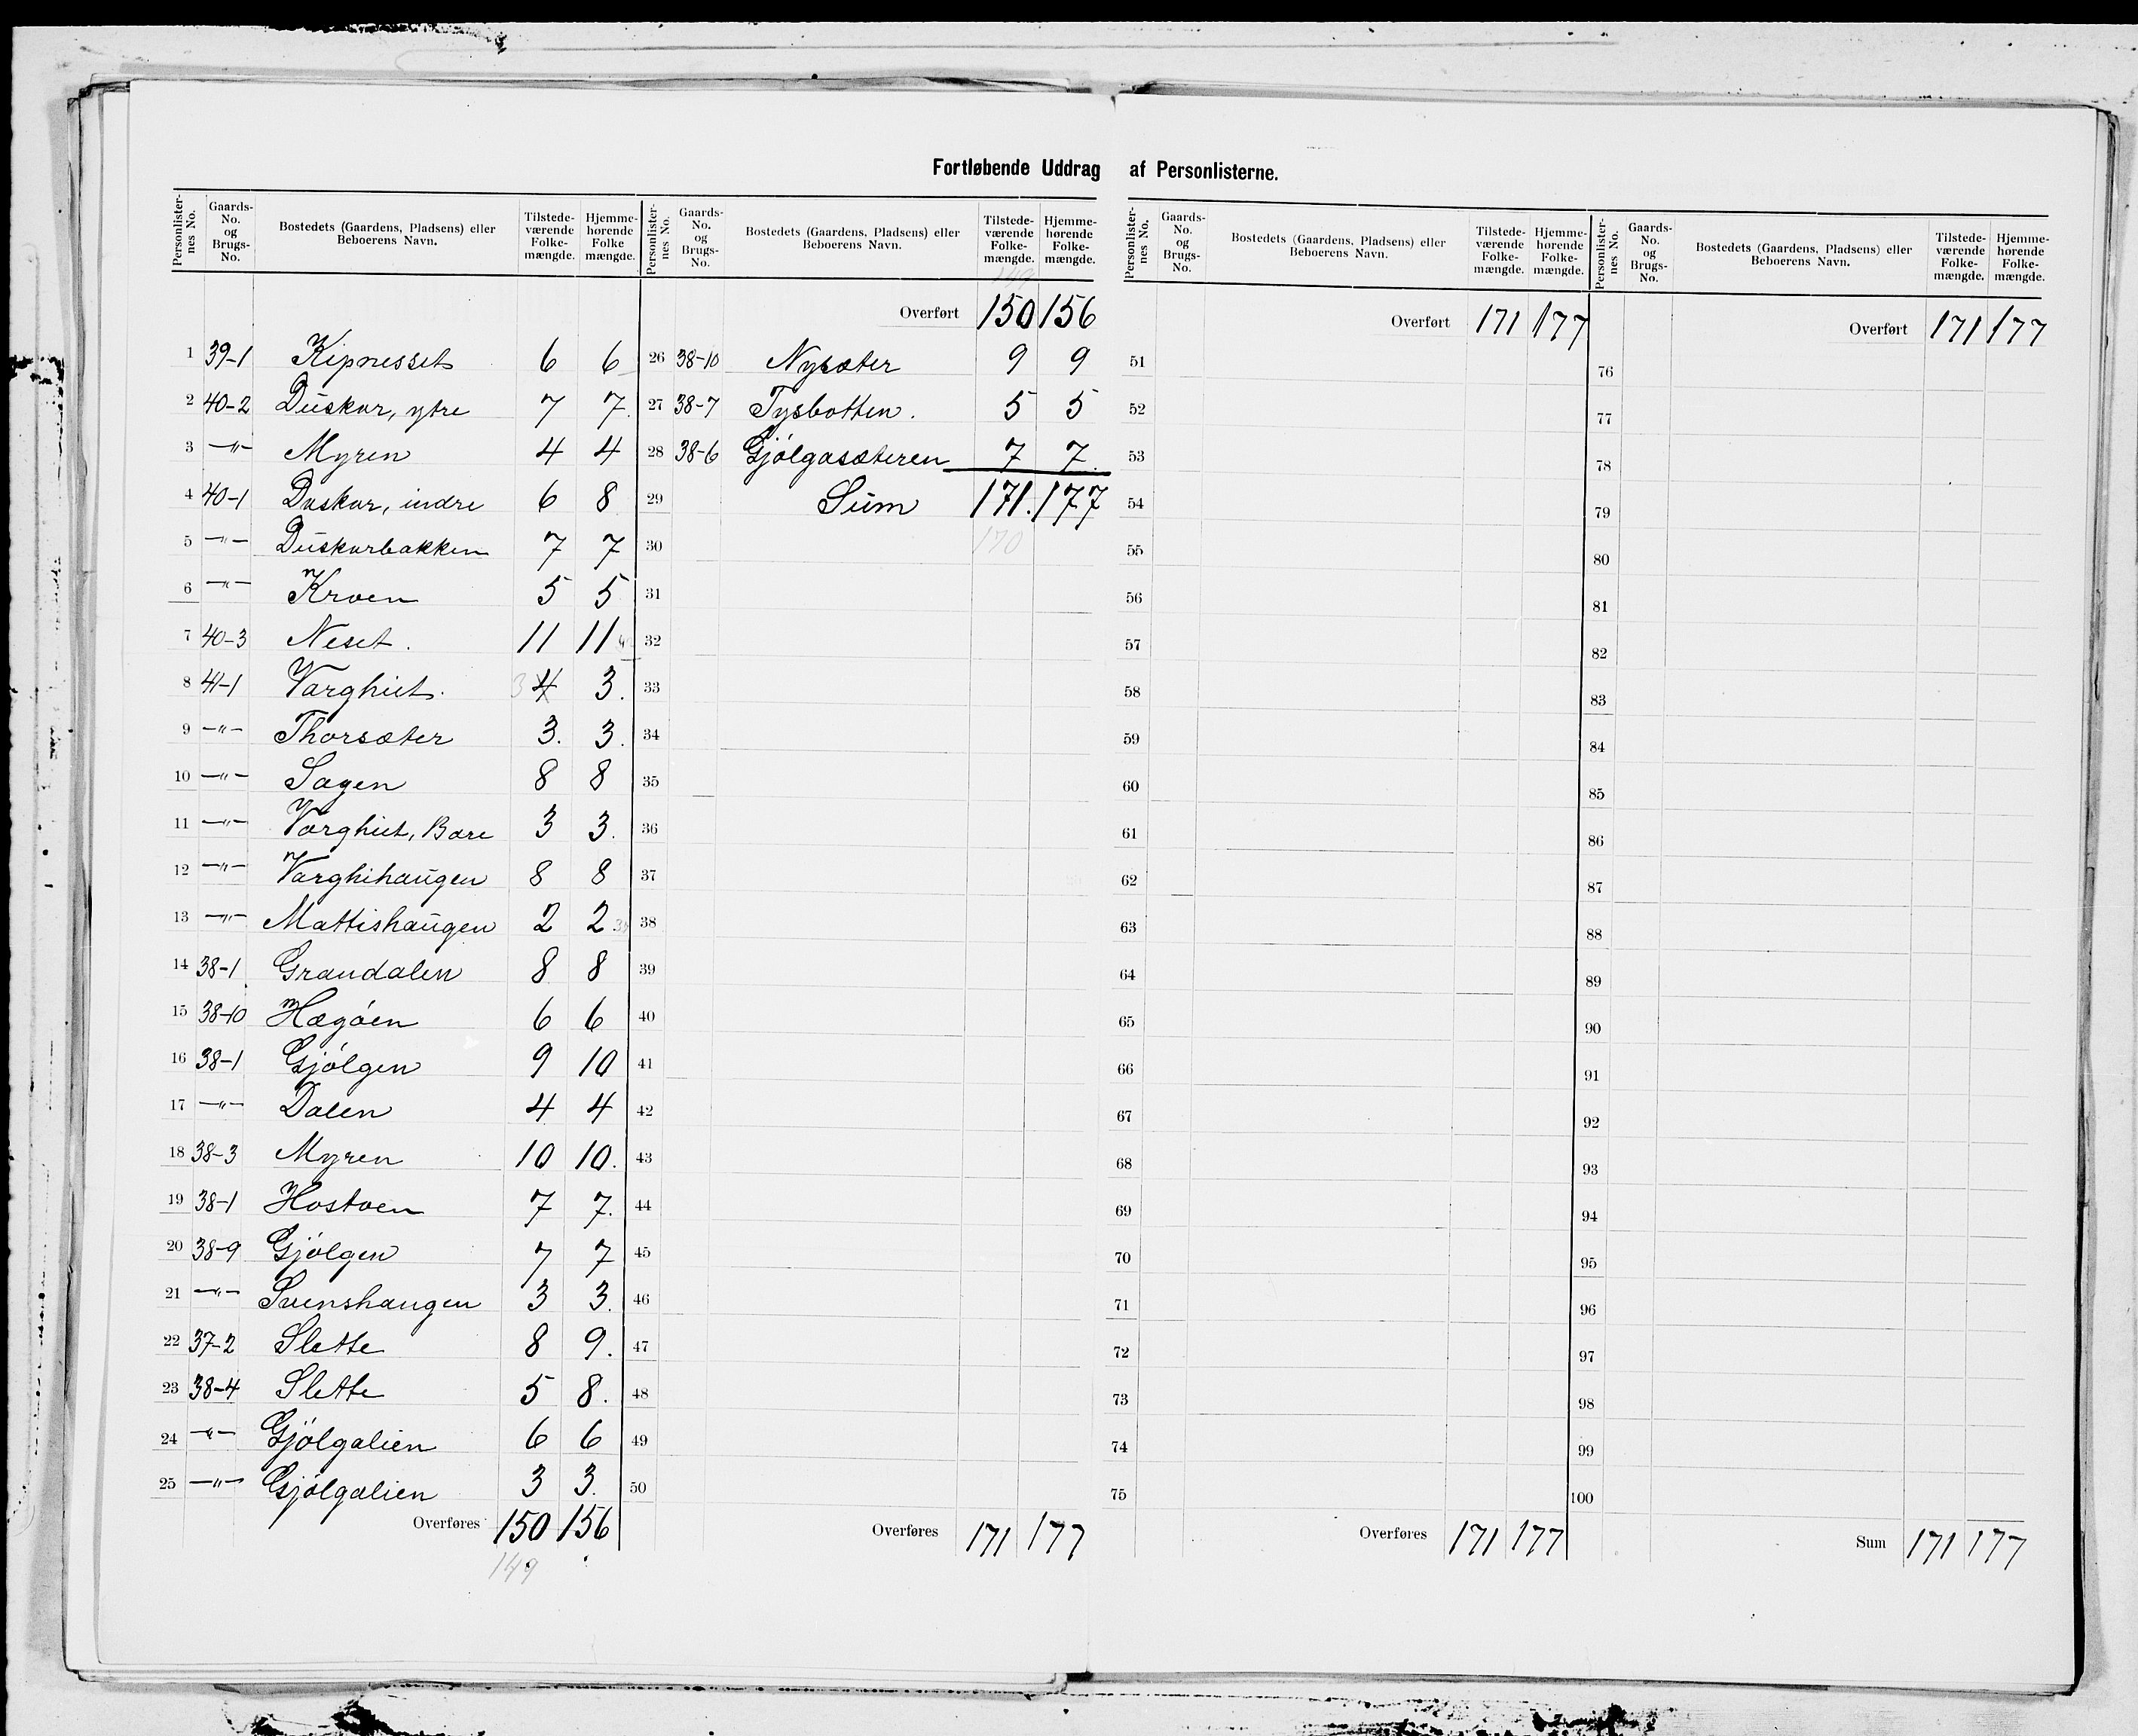 Fortløbende Uddrag af Personlisterne.
Personlister-nes No. Gaards-No. og Brugs-No. Bostedets (Gaardens, Pladsens) eller Beboerens Navn. Tilstede-værende Folke-mængde. Hjemme-hørende Folke mængde.
1 39-1 Kipnesset 6 6
2 40-2 Duskar, ytre 7 7.
3 —"— Myren 4 4
4 40-1 Duskar, indre 6 8
5 —"— Duskarbakken 7 7
6 —"— Kroen 5 5
7 40-3 Neset. 11 11
8 41-1 Varghiet. 3 4 3.
9 —"— Thorsæter 3. 3.
10 —"— Sagen 8 8
11 —"— Varghiet, Bare 3 3.
12 —"— Varghihaugen 8 8
13 —"— Mattishaugen 2 2
14 38-1 Grandalen 8 8
15 38-10 Hægøen 6 6
16 38-1 Gjølgen 9 10
17 —"— Dalen 4 4
18 38-3 Myren 10 10.
19 38-1 Hostoen 7 7.
20 38-9 Gjølgen 7 7
21 —"— Svenshaugen 3 3.
22 37-2 Slette 8 9.
23 38-4 Slette 5 8.
24 —"— Gjølgalien 6 6
25 —"— Gjølgalien 3 3.
Overføres 150 156
149
Personlister-nes No. Gaards-No. og Brugs-No. Bostedets (Gaardens, Pladsens) eller Beboerens Navn. Tilstede-værende Folke-mængde. Hjemme-hørende Folke-mængde.
149
Overført 150 156
26 38-10 Nysæter 9 9
27 38-7 Tysbotten. 5 5
28 38-6 Gjølgasæteren 7 7.
29 Sum 171. 177
30 170
31
32
33
34
35
36
37
38
39
40
41
42
43
44
45
46
47
48
49
50
Overføres 171 177
Personlister-nes No. Gaards-No. og Brugs-No. Bostedets (Gaardens, Pladsens) eller Beboerens Navn. Tilstede-værende Folke-mængde. Hjemme-hørende Folke-mængde.
Overført 171 177
51
52
53
54
55
56
57
58
59
60
61
62
63
64
65
66
67
68
69
70
71
72
73
74
75
Overføres 171 177
Personlister-nes No. Gaards-No. og Brugs-No. Bostedets (Gaardens, Pladsens) eller Beboerens Navn. Tilstede-værende Folke-mængde. Hjemme-hørende Folke-mængde.
Overført 171 177
76
77
78
79
80
81
82
83
84
85
86
87
88
89
90
91
92
93
94
95
96
97
98
99
100
Sum 171 177